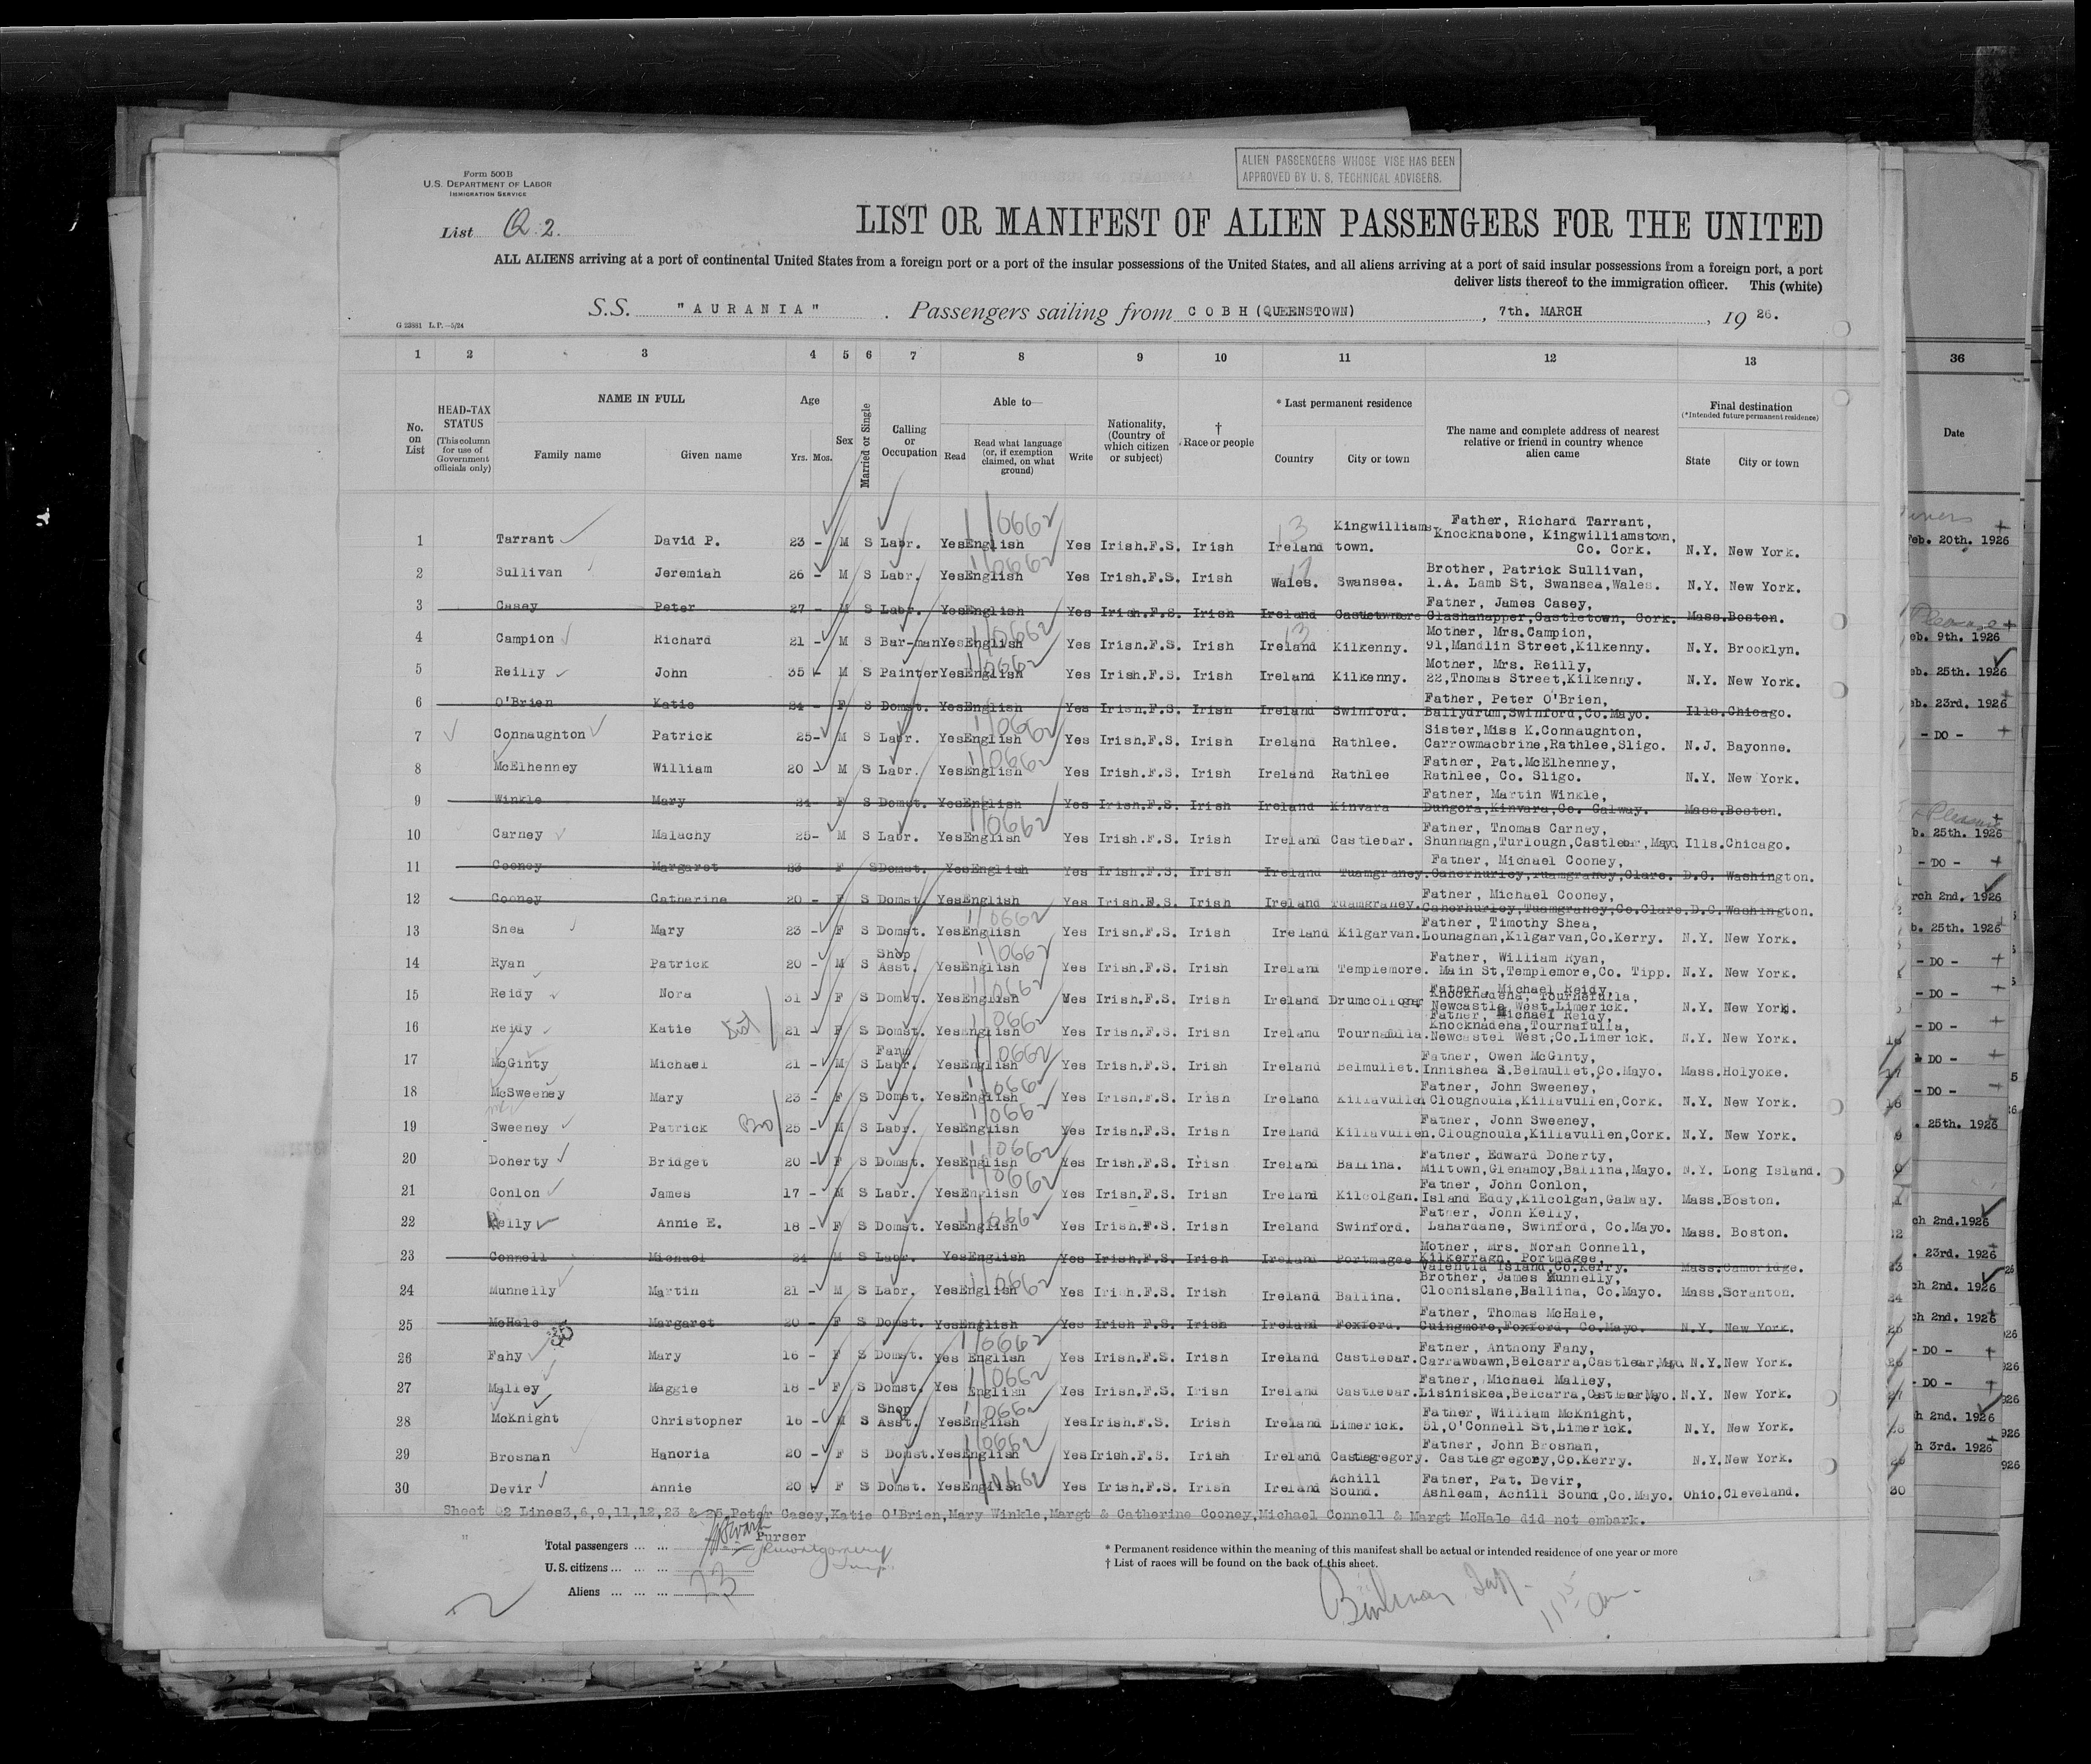 ALIEN PASSENGERS WHOSE VISE HAS BEEN
APPROVED BY U. S. TECHNICAL ADVISERS.
Form 500 B
U.S. DEPARTMENT OF LABOR
IMMIGRATION SERVICE
List Q.2.
LIST OR MANIFEST OF ALIEN PASSENGERS FOR THE UNITED
ALL ALIENS arriving at a port of continental United States from a foreign port or a port of the insular possessions of the United States, and all aliens arriving at a port of said insular possessions from a foreign port, a port
deliver lists thereof to the immigration officer. This (white)
S.S. "AURANIA" . Passengers sailing from COBH (QUEENSTOWN) , 7th. MARCH , 19 26.
G 23881 L.P.-5/24
1 2 3 4 5 6 7 8 9 10 11 12 13
No. on List
HEAD-TAX STATUS (This column for use of Government officials only)
NAME IN FULL Family name Given name
Age Yrs. Mos.
Sex
Married or Single
Calling or Occupation
Able to— Read Read what language (or, if exemption claimed, on what ground) Write
Nationality, (Country of which citizen or subject)
† Race or people
* Last permanent residence Country City or town
The name and complete address of nearest relative or friend in country whence alien came
Final destination (*Intended future permanent residence) State City or town
1 Tarrant David P. 23 - M S Labr. Yes English 10662 Yes Irish.F.S. Irish Ireland Kingwilliamstown. Father, Richard Tarrant, Knocknabone, Kingwilliamstown, Co. Cork. N.Y. New York.
2 Sullivan Jeremiah 26 - M S Labr. Yes English 10662 Yes Irish.F.S. Irish Wales. Swansea. Brother, Patrick Sullivan, 1.A. Lamb St, Swansea,Wales. N.Y. New York.
3 Casey Peter 27 - M S Labr. Yes English Yes Irish.F.S. Irish Ireland Father, James Casey, Glashanapper,Castletown, Cork. Mass.Boston.
4 Campion Richard 21 - M S Bar-man Yes English 10662 Yes Irish.F.S. Irish Ireland Kilkenny. Mother, Mrs.Campion, 91,Mandlin Street,Kilkenny. N.Y. Brooklyn.
5 Reilly John 35 - M S Painter Yes English 10662 Yes Irish.F.S. Irish Ireland Kilkenny. Mother, Mrs. Reilly, 22,Thomas Street,Kilkenny. N.Y. New York.
6 O'Brien Katie 24 - F S Domst. Yes English Yes Irish.F.S. Irish Ireland Swinford. Father, Peter O'Brien, Ballydrum,Swinford,Co.Mayo. Ills.Chicago.
7 Connaughton Patrick 25- M S Labr. Yes English 10662 Yes Irish.F.S. Irish Ireland Rathlee. Sister,Miss K.Connaughton, Carrowmacbrine,Rathlee,Sligo. N.J. Bayonne.
8 McElhenney William 20 - M S Labr. Yes English 10662 Yes Irish.F.S. Irish Ireland Rathlee Father, Pat.McElhenney, Rathlee, Co. Sligo. N.Y. New York.
9 Winkle Mary 24- F S Domst. Yes English Yes Irish.F.S. Irish Ireland Kinvara Father, Martin Winkle, Dungora,Kinvara,Co. Galway. Mass.Boston.
10 Carney Malachy 25- M S Labr. Yes English 10662 Yes Irish.F.S. Irish Ireland Castlebar. Father, Thomas Carney, Shunnagh,Turlough,Castlebar,Mayo. Ills.Chicago.
11 Cooney Margaret 23 F S Domst. Yes English Yes Irish.F.S. Irish Ireland Tuamgraney. Father, Michael Cooney, Caherhurley,Tuamgraney,Clare. D.C. Washington.
12 Cooney Catherine 20 - F S Domst. Yes English Yes Irish.F.S. Irish Ireland Tuamgraney. Father, Michael Cooney, Caherhurley,Tuamgraney,Co.Clare. D.C. Washington.
13 Shea Mary 23 - F S Domst. Yes English 10662 Yes Irish.F.S. Irish Ireland Kilgarvan. Father, Timothy Shea, Lounaghan,Kilgarvan,Co.Kerry. N.Y. New York.
14 Ryan Patrick 20 - M S Shop Asst. Yes English 10662 Yes Irish.F.S. Irish Ireland Templemore. Father, William Ryan, Main St,Templemore,Co. Tipp. N.Y. New York.
15 Reidy Nora 31 F S Domst. Yes English 10662 Yes Irish.F.S. Irish Ireland Father, Michael Reidy, Knocknadeha, Tournefulla, Newcastle West,Limerick. N.Y. New York.
16 Reidy Katie Sist 21 - F S Domst. Yes English 10662 Yes Irish.F.S. Irish Ireland Tournafulla. Father, Michael Reidy, Knocknadeha,Tournafulla, Newcastel West,Co.Limerick. N.Y. New York.
17 McGinty Michael 21 - M S Farm Labr. Yes English 10662 Yes Irish.F.S. Irish Ireland Belmullet. Father, Owen McGinty, Innishea S.Belmullet,Co.Mayo. Mass.Holyoke.
18 McSweeney Mary 23 - F S Domst. Yes English 10662 Yes Irish.F.S. Irish Ireland Killavullen Father, John Sweeney, Cloughoula,Killavullen,Cork. N.Y. New York.
19 Sweeney Patrick Bro 25 - M S Labr. Yes English 10662 Yes Irish.F.S. Irish Ireland Killavullen. Father, John Sweeney, Cloughoula,Killavullen,Cork. N.Y. New York.
20 Doherty Bridget 20 - F S Domst. Yes English 10662 Yes Irish.F.S. Irish Ireland Ballina. Father, Edward Doherty, Miltown,Glenamoy,Ballina,Mayo. N.Y. Long Island.
21 Conlon James 17 - M S Labr. Yes English 10662 Yes Irish.F.S. Irish Ireland Kilcolgan. Father, John Conlon, Island Eddy,Kilcolgan,Galway. Mass.Boston.
22 Kelly Annie E. 18 - F S Domst. Yes English 10662 Yes Irish.F.S. Irish Ireland Swinford. Father, John Kelly, Lahardane, Swinford, Co.Mayo. Mass. Boston.
23 Connell Michael 24 M S Labr. Yes English Yes Irish.F.S. Irish Ireland Portmagee Mother, Mrs. Norah Connell, Kilkerragh, Portmagee, Valentia Island,Co.Kerry. Mass.Cambridge.
24 Munnelly Martin 21 - M S Labr. Yes English 10662 Yes Irish.F.S. Irish Ireland Ballina. Brother, James Munnelly, Cloonislane,Ballina, Co.Mayo. Mass.Scranton.
25 McHale Margaret 20 - F S Domst. Yes English Yes Irish F.S. Irish Ireland Foxford. Father, Thomas McHale, Cuingmore,Foxford, Co.Mayo. N.Y. New York.
26 Fahy Mary 16 - F S Domst. Yes English 10662 Yes Irish.F.S. Irish Ireland Castlebar. Father, Anthony Fahy, Carrawbawn,Belcarra,Castlebar,Mayo. N.Y.New York.
27 Malley Maggie 18 - F S Domst. Yes English 10662 Yes Irish.F.S. Irish Ireland Castlebar. Father, Michael Malley, Lisiniskea,Belcarra,Castlebar,Mayo. N.Y. New York.
28 McKnight Christopher 16 - M S Shop Asst. Yes English 10662 Yes Irish.F.S. Irish Ireland Limerick. Father, William McKnight, 51,O'Connell St,Limerick. N.Y. New York.
29 Brosnan Hanoria 20 - F S Domst. Yes English 10662 Yes Irish.F.S. Irish Ireland Castlegregory. Father, John Brosnan, Castlegregory,Co.Kerry. N.Y.New York.
30 Devir Annie 20 F S Domst. Yes English 10662 Yes Irish.F.S. Irish Ireland Achill Sound. Father, Pat. Devir, Ashleam, Achill Sound,Co.Mayo. Ohio.Cleveland.
Sheet Q2 Lines3,6,9,11,12,23 & 25,Peter Casey,Katie O'Brien,Mary Winkle,Margt & Catherine Cooney,Michael Connell & Margt McHale did not embark.
Purser
Total passengers ... ...
U.S. citizens ... ... ...
Aliens ... ... ... 23
* Permanent residence within the meaning of this manifest shall be actual or intended residence of one year or more
† List of races will be found on the back of this sheet.
36
Date
Feb. 20th. 1926
eb. 9th. 1926
eb. 25th. 1926
eb. 23rd. 1926
- DO -
b. 25th. 1926
- DO -
rch 2nd. 1926
b. 25th. 1926
- DO -
- DO -
- DO -
DO -
- DO -
. 25th. 1926
ch 2nd.1926
. 23rd. 1926
ch 2nd. 1926
ch 2nd. 1926
- DO -
- DO -
h 2nd. 1926
h 3rd. 1926